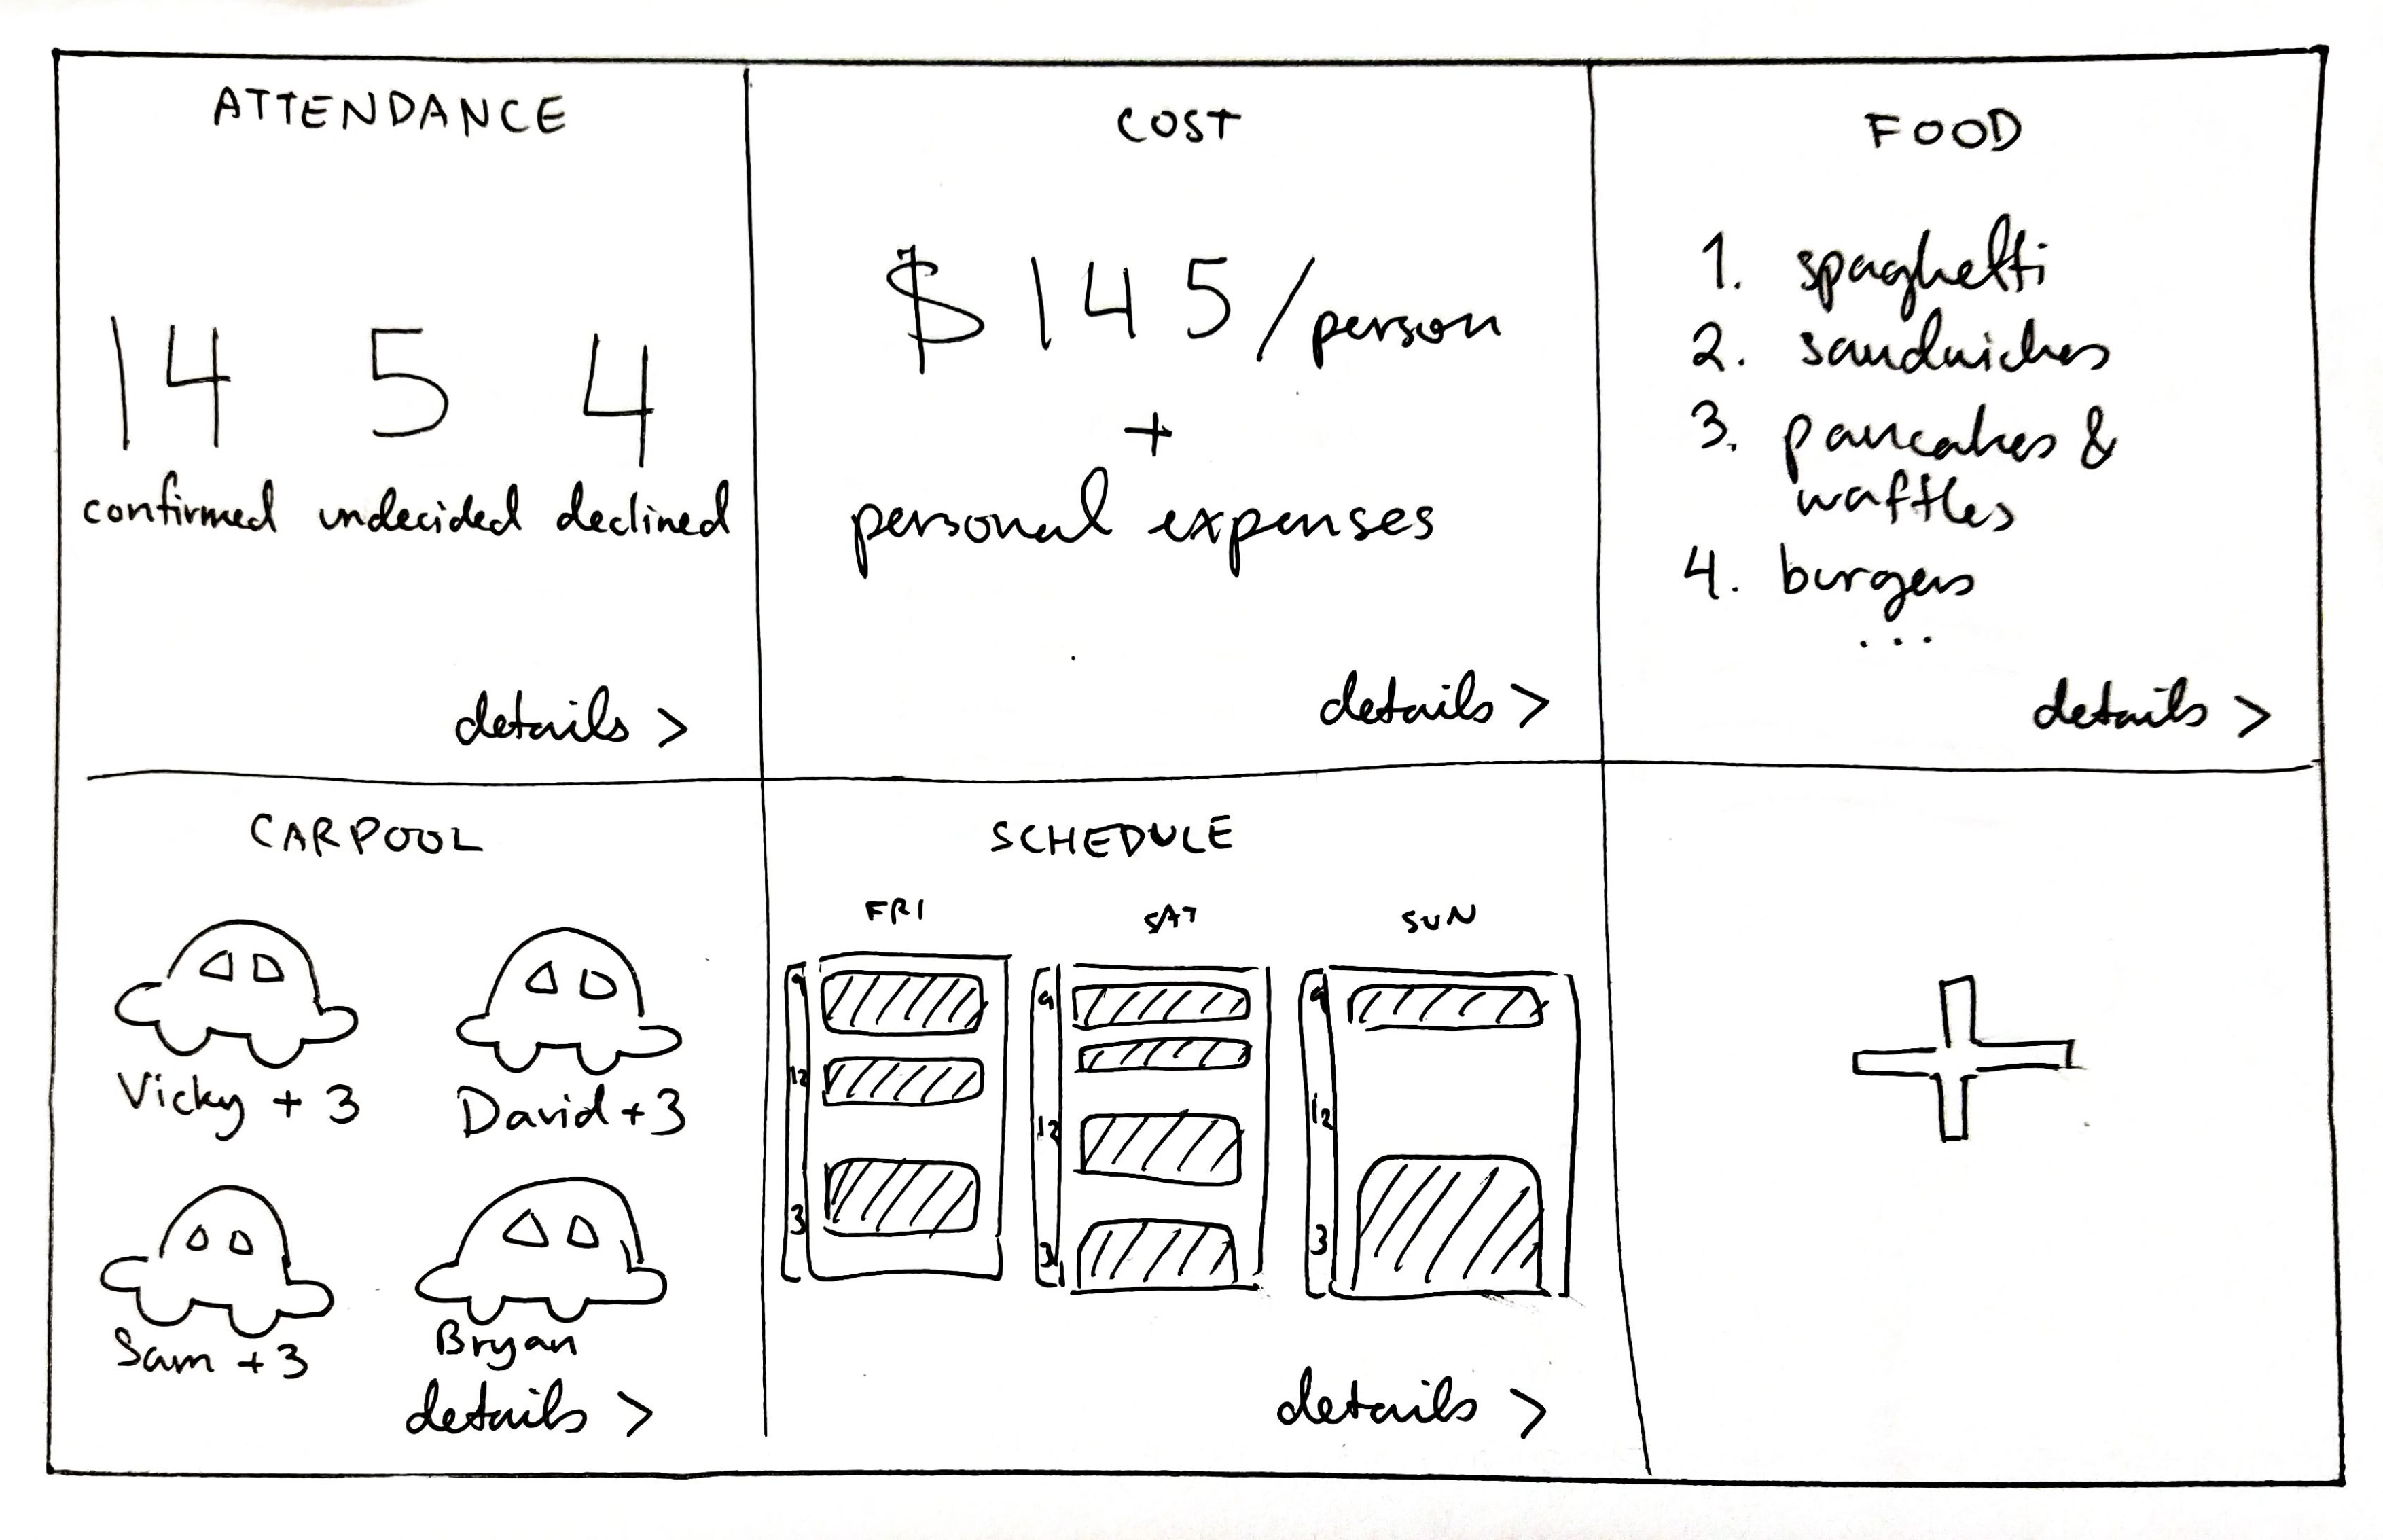 ATTENDANCE
14 5 4
confirmed undecided declined
details >
COST
$145/person
+
personal expenses
details >
FOOD
1. spaghetti
2. sandwiches
3. pancakes &
waffles
4. burgers
...
details >
CARPOOL
Vicky + 3
David + 3
Sam + 3
Bryan
details >
SCHEDULE
FRI
9
12
3
SAT
9
12
3
SUN
9
12
3
details >